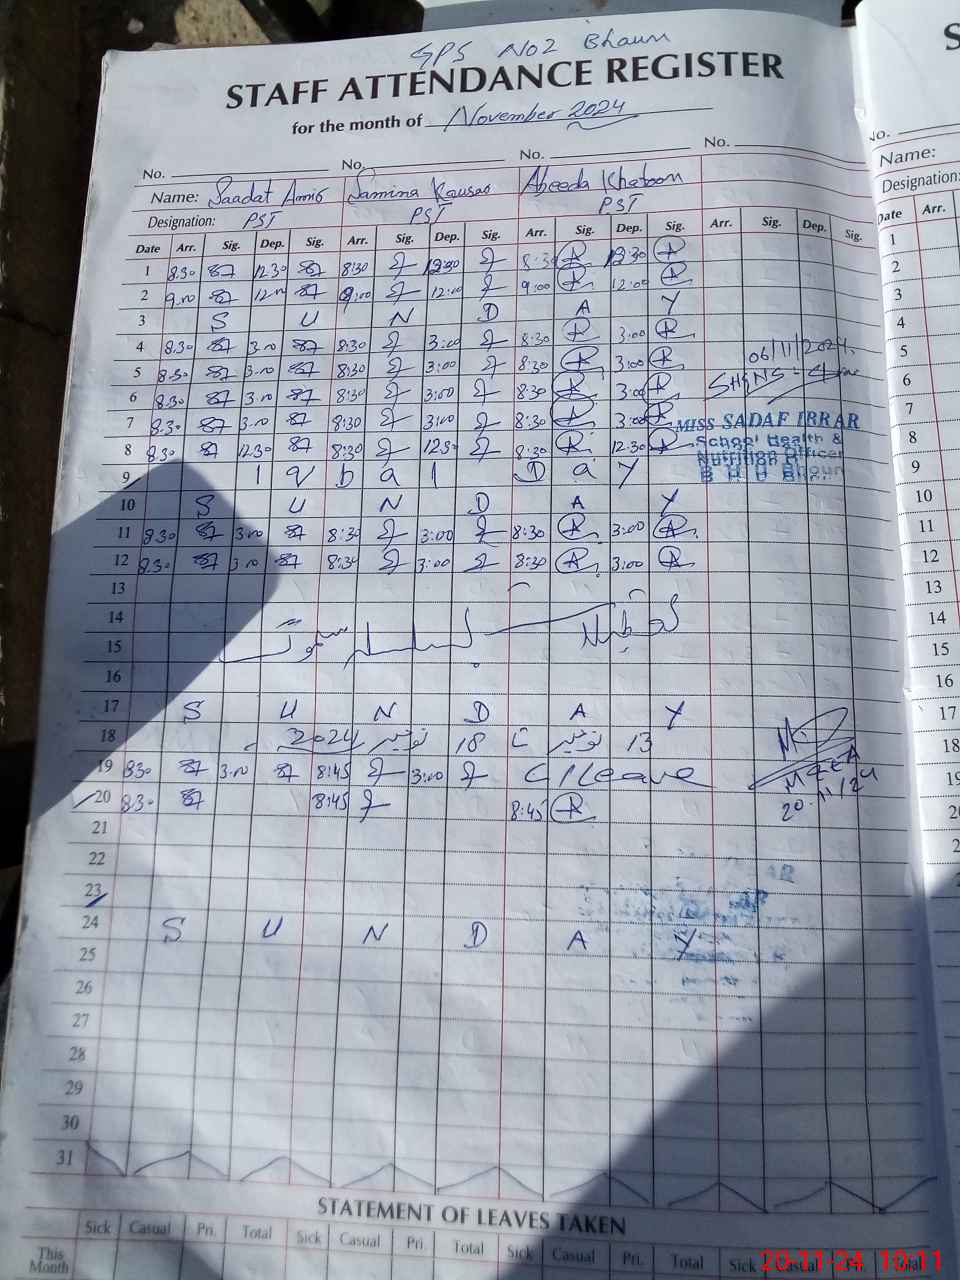 GPS No2 Bhaun
STAFF ATTENDANCE REGISTER
for the month of November 2024
No. No. No. No.
Name: Saadat Amir Samina Kausar Abeeda Khatoon
Designation: PST PST PST
Date Arr. Sig. Dep. Sig. Arr. Sig. Dep. Sig. Arr. Sig. Dep. Sig. Arr. Sig. Dep. Sig.
1 8.30 12.30 8:30 12:30 8:30 12:30
2 9.00 12.00 9:00 12:00 9:00 12:00
3 S U N D A Y
4 8.30 3.00 8:30 3:00 8:30 3:00
5 8.30 3.00 8:30 3:00 8:30 3:00 06/11/2024.
6 8.30 3.00 8:30 3:00 8:30 3:00 SH&NS
7 8.30 3.00 8:30 3:00 8:30 3:00 MISS SADAF IBRAR
8 8.30 12.30 8:30 12:30 8:30 12:30 School Health &
Nutrition Officer
9 Iqbal Day B H U Bhoun
10 S U N D A Y
11 8.30 3.00 8:30 3:00 8:30 3:00
12 8.30 3.00 8:30 3:00 8:30 3:00
13
14
15 بسلسلہ سموگ
16
17 S U N D A Y
18 13 نومبر تا 18 نومبر 2024
19 8.30 3.00 8:45 3:00 C/Leave MEEA
20 8.30 8:45 8:45 20-11/24
21
22
23
24 S U N D A Y
25
26
27
28
29
30
31
STATEMENT OF LEAVES TAKEN
Sick Casual Pri. Total Sick Casual Pri. Total Sick Casual Pri. Total Sick Casual Pri. Total
This
Month
S
No.
Name:
Designation:
Date Arr.
1
2
3
4
5
6
7
8
9
10
11
12
13
14
15
16
17
18
19
20
20-11-24 10:11